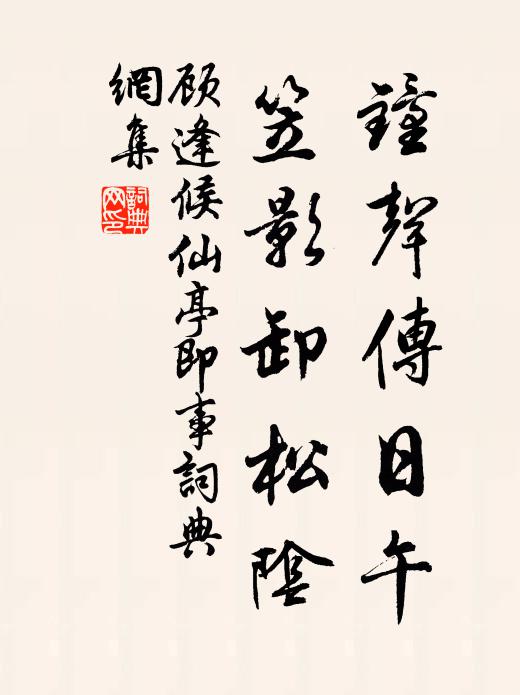 鐘聲傳日午
笠影卸松陰
顧逢候仙亭即事詞典
網集
詞典網印